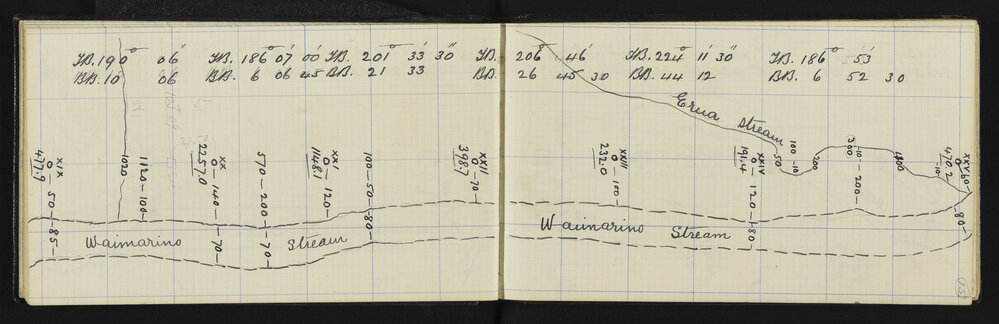 F.B. 190° 06' F.B. 186° 07' 00" F.B. 201° 33' 30" F.B. 206° 46' F.B. 224° 11' 30" F.B. 186° 53'
B.B. 10 06 B.B. 6 06 45 B.B. 21 33 B.B. 26 45 30 B.B. 44 12 B.B. 6 52 30
Erua Stream
XXIX
O
477.9
50
85
1020
1120-100
XX
O
2257.0
140
70
570-200
70
XXI
O
1148.1
120
100-50
80
XXII
O
398.7
70
XXIII
O
232.0
100
XXIV
O
191.4
120
80
50
100-10
200
300
10-200
400
XXV
O
470.2
10
80
Waimarino Stream Waimarino Stream
15